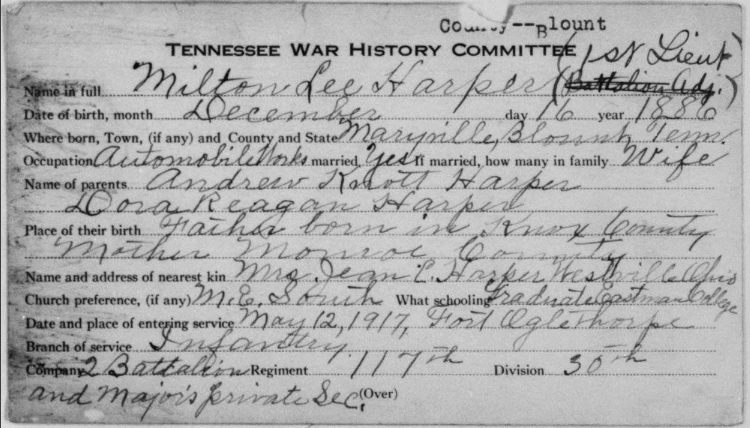 County--Blount
TENNESSEE WAR HISTORY COMMITTEE (1st Lieut)
Name in full Milton Lee Harper (Battalion Adj.)
Date of birth, month December day 16 year 1886
Where born, Town, (if any) and County and State Maryville, Blount, Tenn.
Occupation Automobile Works married, Yes If married, how many in family Wife
Name of parents Andrew Knott Harper
Dora Reagan Harper
Place of their birth Father born in Knox County
Mother Monroe County
Name and address of nearest kin Mrs. Jean E. Harper Westville Ohio
Church preference, (if any) M.E. South What schooling Graduate Eastman College
Date and place of entering service May 12, 1917, Fort Oglethorpe
Branch of service Infantry
Company 2 Battalion Regiment 117th Division 30th
and Major's private Sec. (Over)